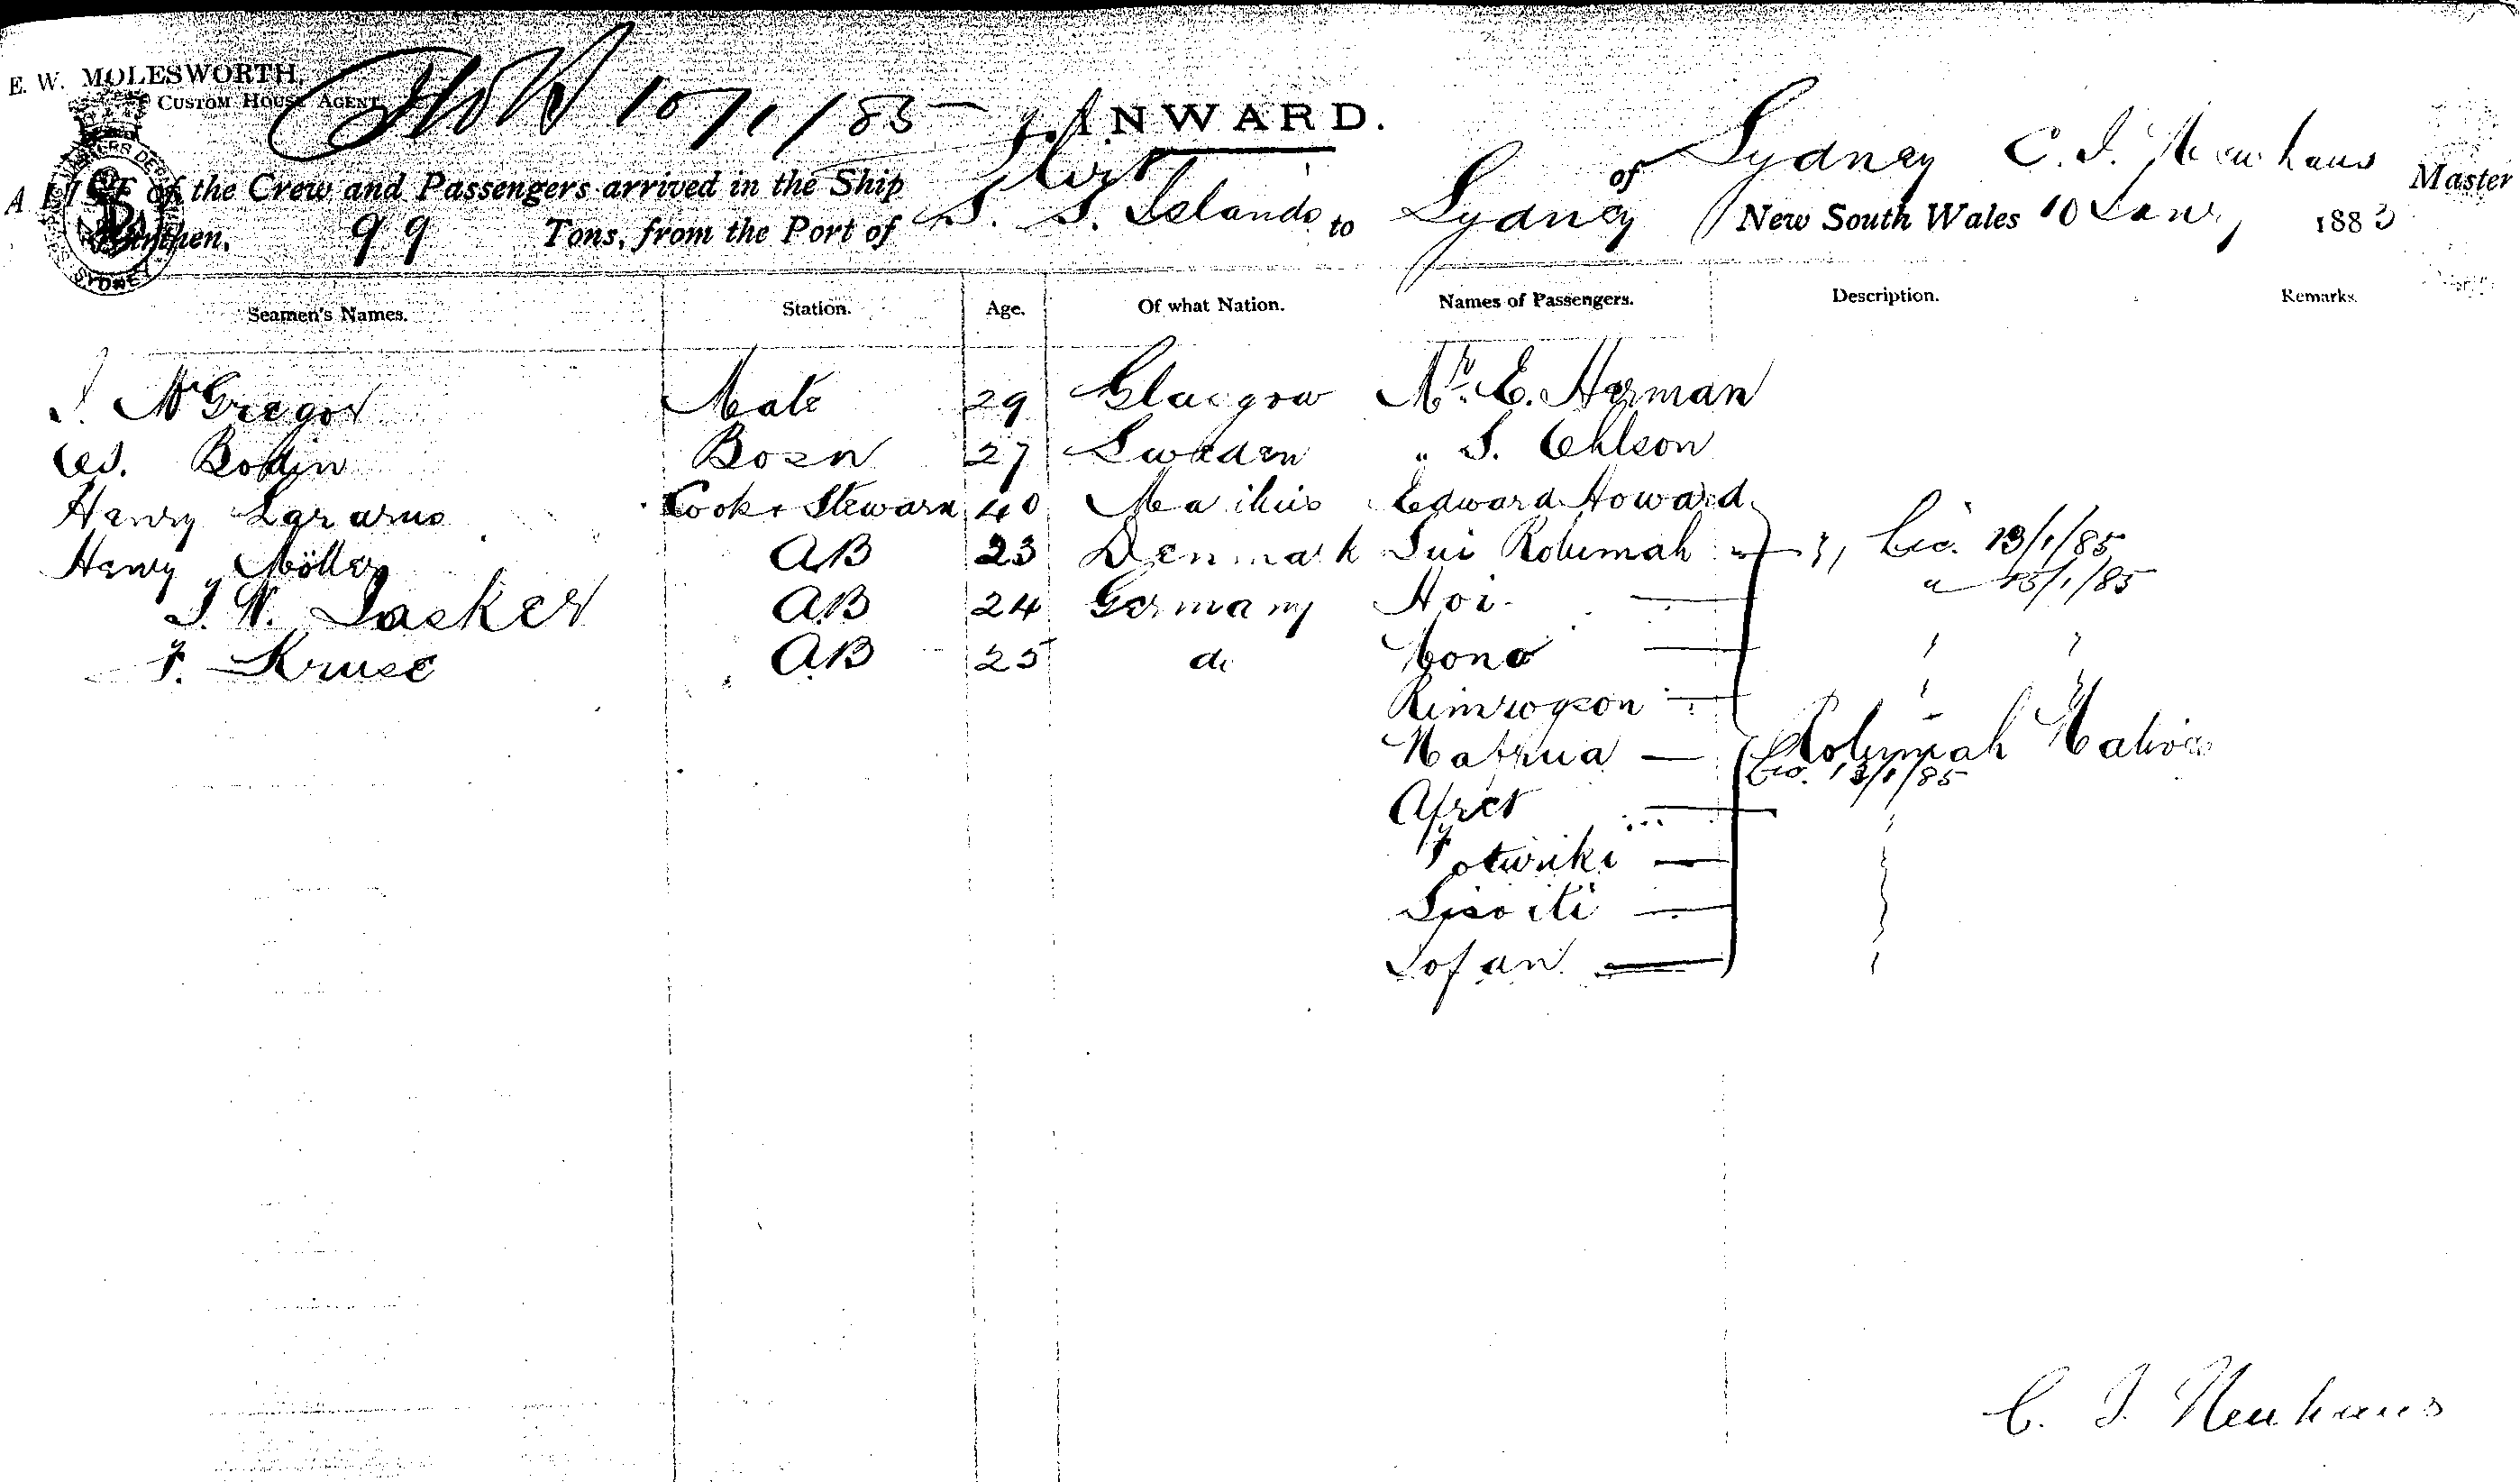 E. W. MOLESWORTH,
CUSTOM HOUSE AGENT
10/1/85
INWARD.
A LIST of the Crew and Passengers arrived in the Ship of Sydney C. J. Neuhaus Master
Burthen, 99 Tons, from the Port of S. S. Islands to Sydney New South Wales 10 Jany 1885
Seamen's Names. Station. Age. Of what Nation. Names of Passengers. Description. Remarks.
J. McGregor Mate 29 Glasgow Mr. E. Herman
Bodin Bosn 27 Sweden " S. Ohlson
Henry Lazarus Cook & Steward 40 Edward Howard
Henry Möller AB 23 Denmark Sui Rotumah Lic. 13/1/85
J. W. Lasker AB 24 Germany Hoi " 13/1/85
F. Kruse AB 25 do Mono
Rimrogeon
Nafrua Rotumah Natives
Lic. 13/1/85
Afret
Foturiki
Sisoiti
Lofan
C. J. Neuhaus